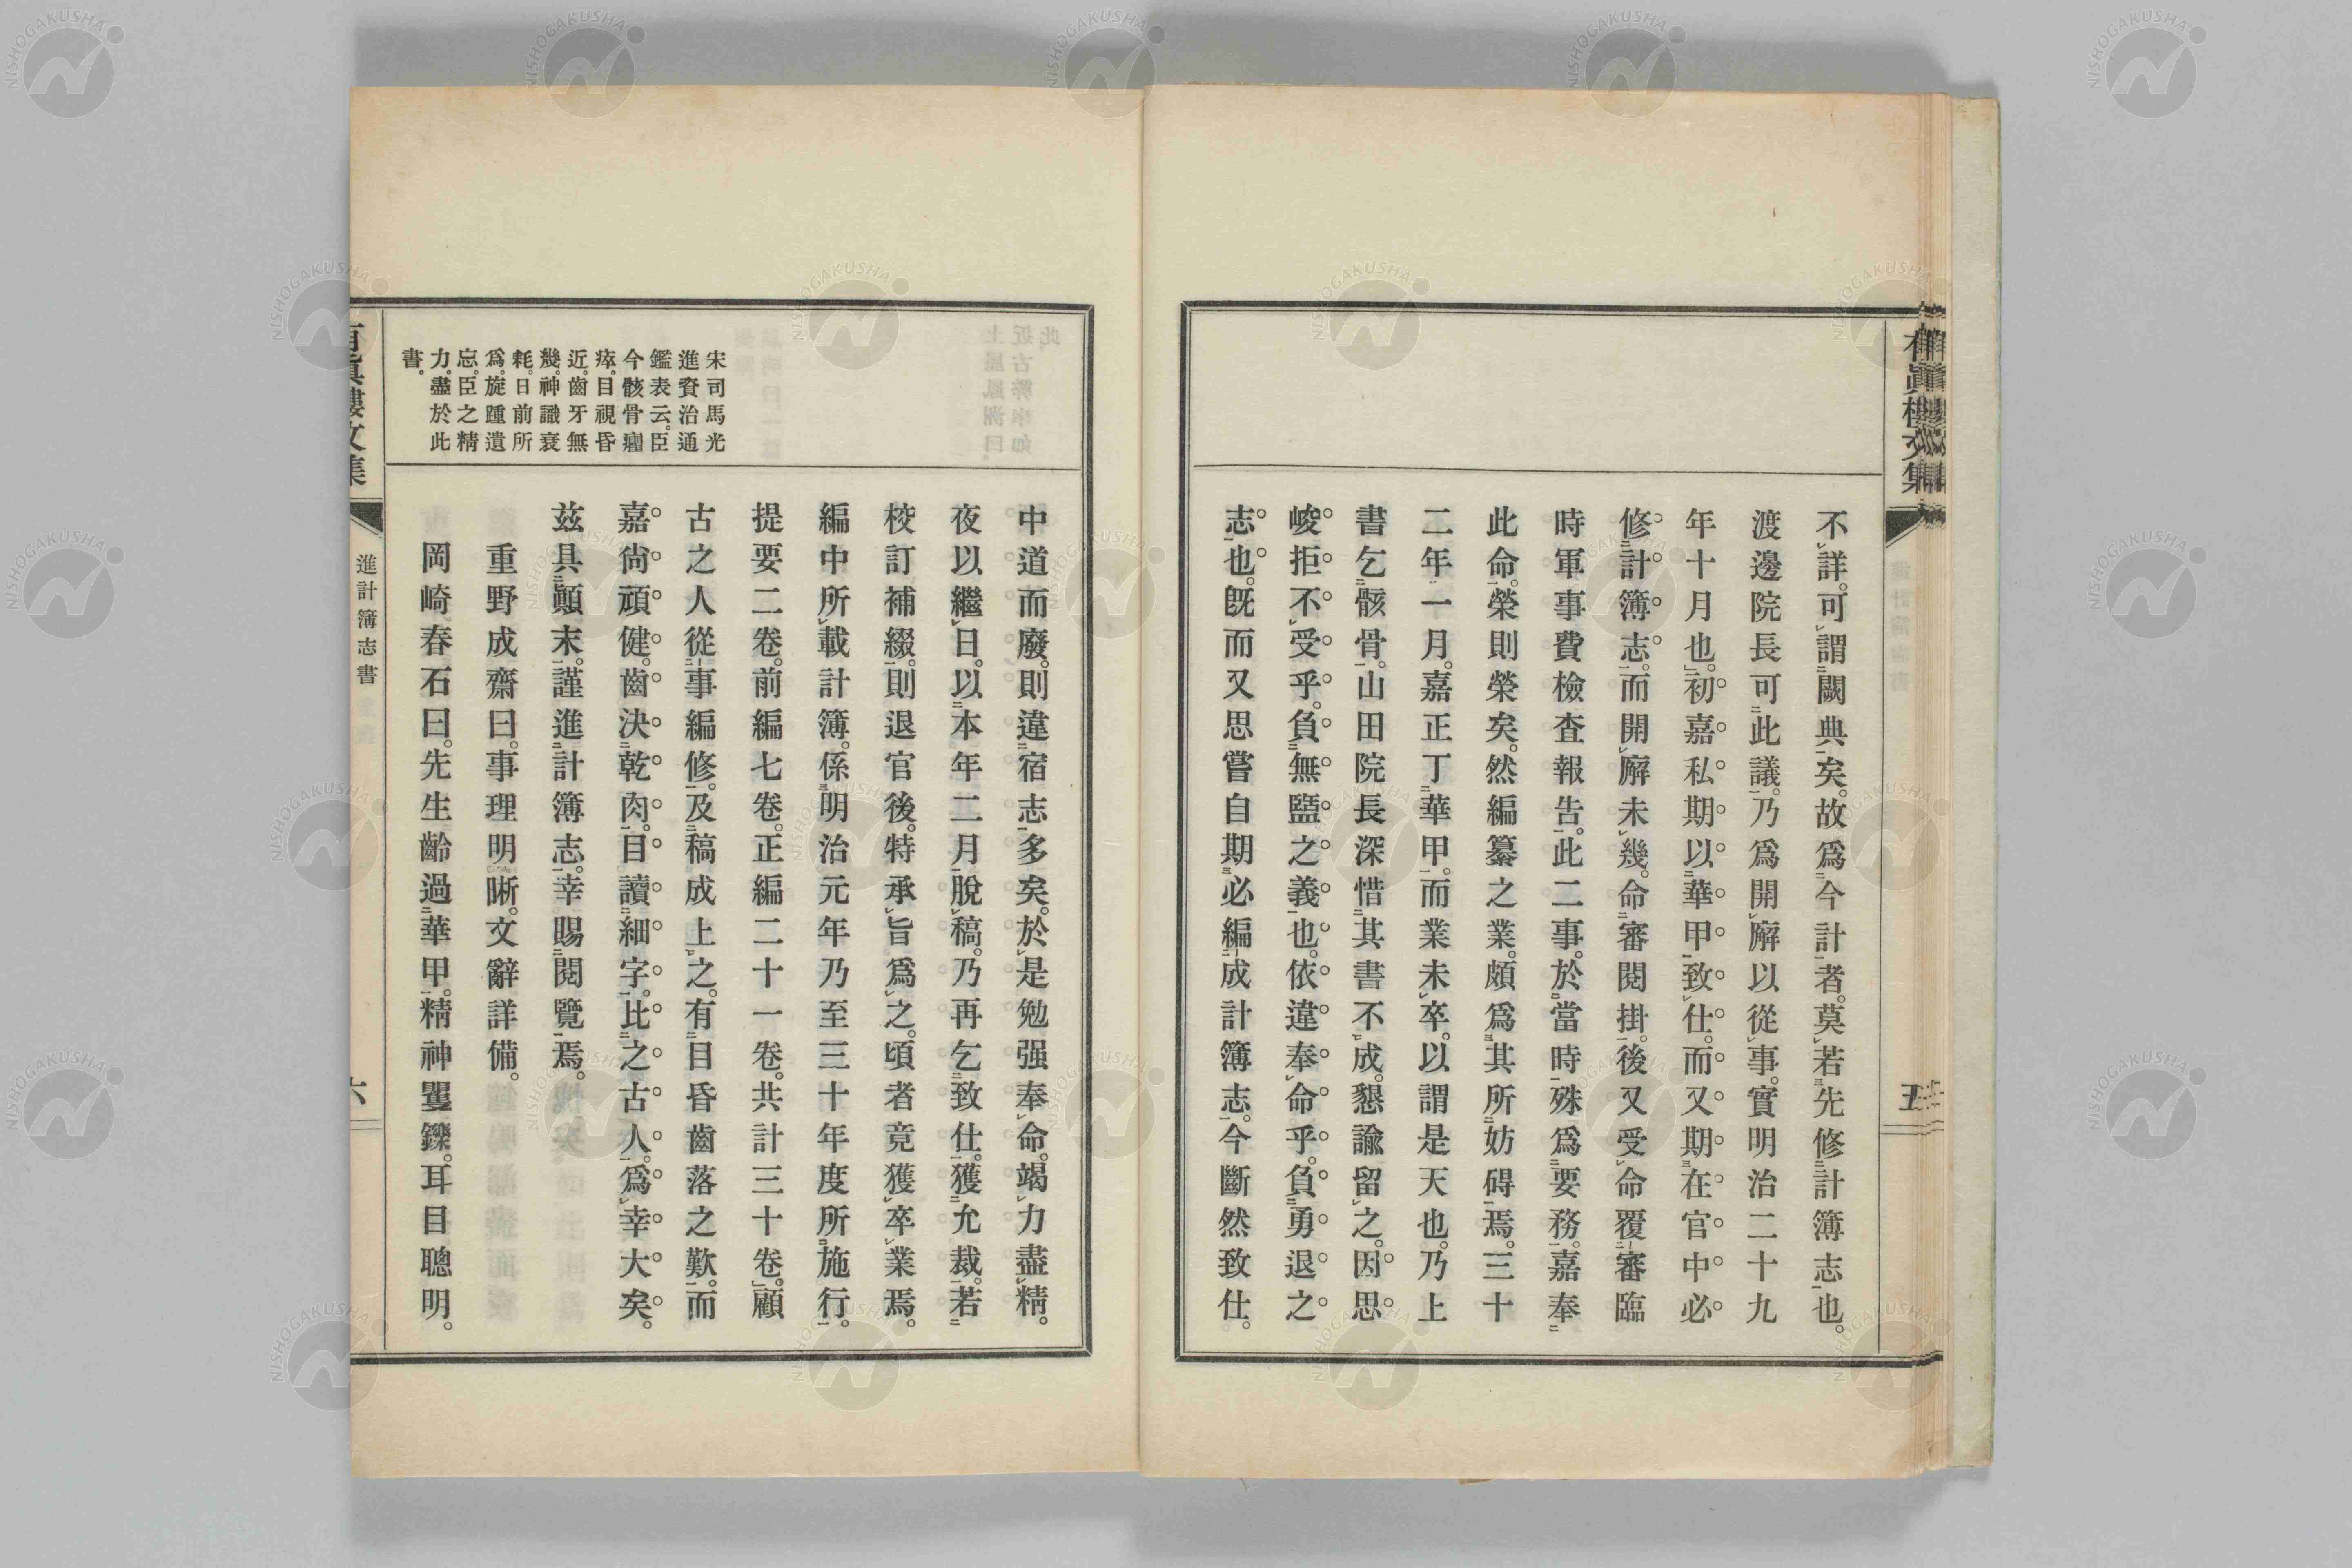 不詳。可謂闕典矣。故爲今計者。莫若先修計簿志也。
渡邊院長可此議。乃爲開廨以從事。實明治二十九
年十月也。初嘉私期以華甲致仕。而又期在官中必
修計簿志。而開廨未幾。命審閱掛。後又受命覆審臨
時軍事費檢査報告。此二事。於當時殊爲要務。嘉奉
此命。榮則榮矣。然編纂之業。頗爲其所妨碍焉。三十
二年一月。嘉正丁華甲。而業未卒。以謂是天也。乃上
書乞骸骨。山田院長深惜其書不成。懇諭留之。因思
峻拒不受乎。負無盬之義也。依違奉命乎。負勇退之
志也。旣而又思嘗自期必編成計簿志。今斷然致仕。
有眞樓文集
五
宋司馬光
進資治通
鑑表云。臣
今骸骨癯
瘁。目視昏
近。齒牙無
幾。神識衰
耗。日前所
爲。旋踵遺
忘。臣之精
力。盡於此
書。
中道而廢。則違宿志多矣。於是勉强奉命。竭力盡精。
夜以繼日。以本年二月脫稿。乃再乞致仕。獲允裁。若
校訂補綴。則退官後。特承旨爲之。頃者竟獲卒業焉。
編中所載計簿。係明治元年乃至三十年度所施行。
提要二卷。前編七卷。正編二十一卷。共計三十卷。顧
古之人從事編修。及稿成上之。有目昏齒落之歎。而
嘉尙頑健。齒決乾肉。目讀細字。比之古人。爲幸大矣。
玆具顚末。謹進計簿志。幸賜閱覽焉。
重野成齋曰。事理明晰。文辭詳備。
岡崎春石曰。先生齡過華甲。精神矍鑠。耳目聰明。
有眞樓文集
進計簿志書
六
NISHOGAKUSHA